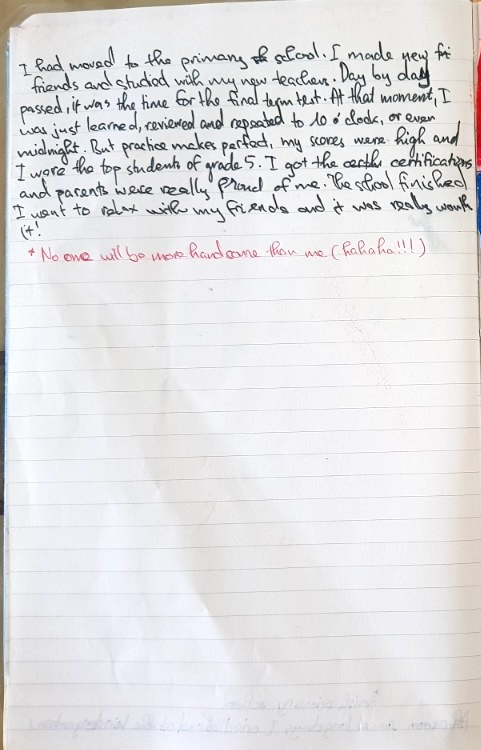 I had moved to the primary school. I made new fri
friends and studied with my new teachers. Day by day
passed, it was the time for the final term test. At that moment, I
was just learned, reviewed and repeated to 10 o'clock, or even
midnight. But practice makes perfect, my scores were high and
I were the top students of grade 5. I got the certifications
and parents were really proud of me. The school finished
I went to relax with my friends and it was really worth
it!
* No one will be more handsome than me (hahaha!!!)